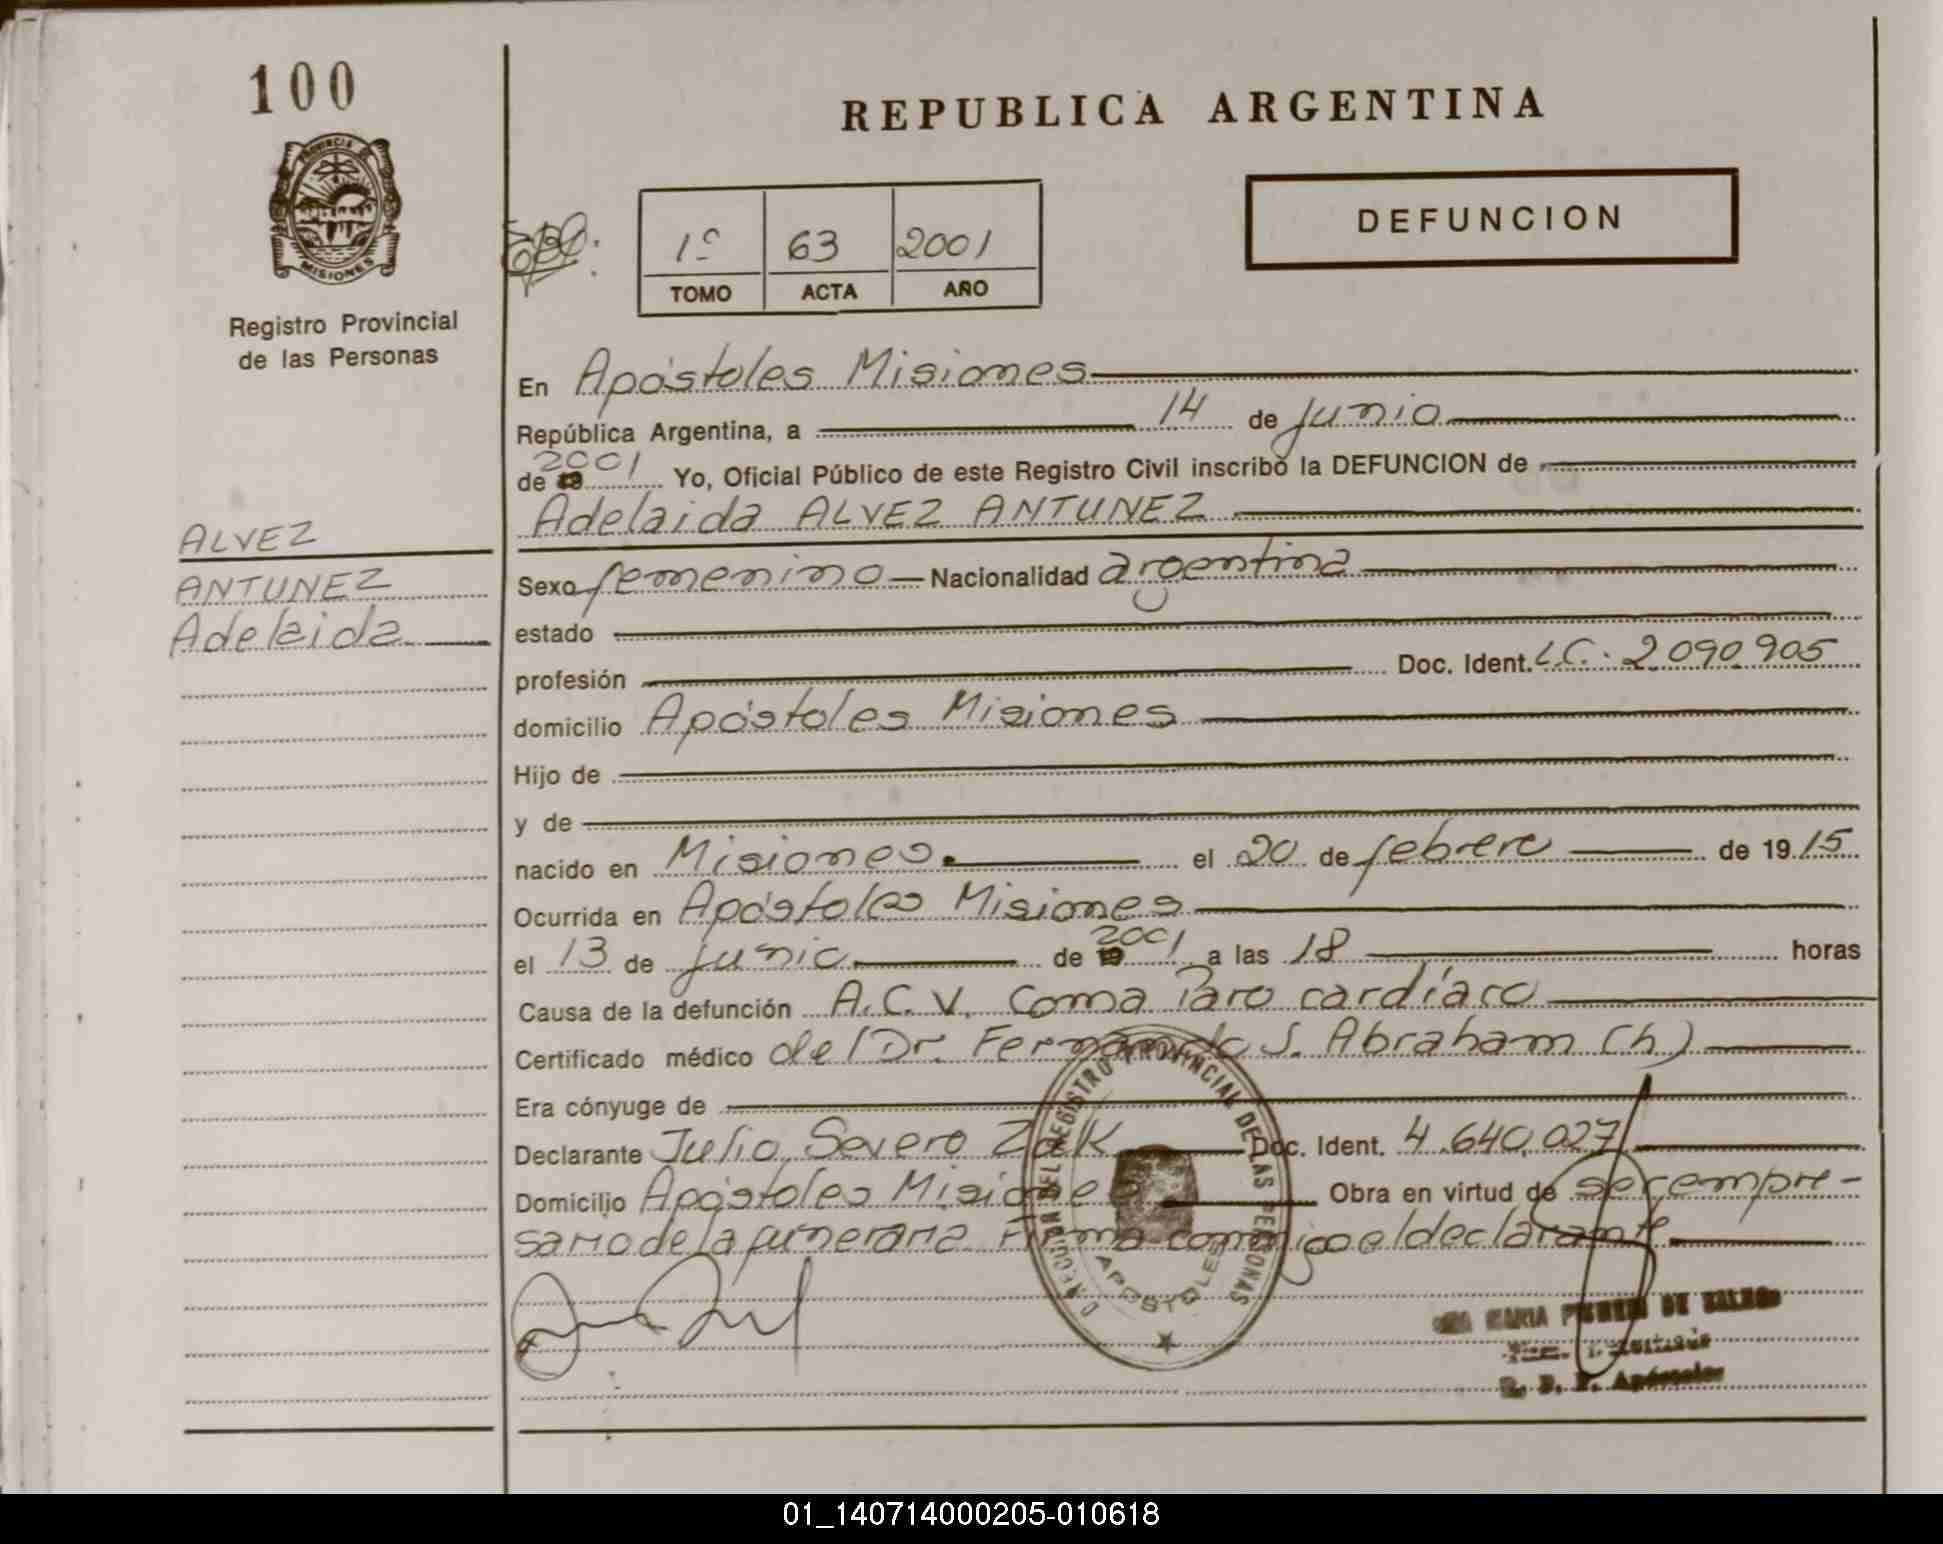 100
PROVINCIA DE
MISIONES
Registro Provincial
de las Personas
ALVEZ
ANTUNEZ
Adelaida
REPUBLICA ARGENTINA
1º 63 2001
TOMO ACTA AÑO
DEFUNCION
En Apóstoles Misiones
República Argentina, a 14 de junio
de 19 2001 Yo, Oficial Público de este Registro Civil inscribo la DEFUNCION de
Adelaida ALVEZ ANTUNEZ
Sexo femenino Nacionalidad argentina
estado
profesión Doc. Ident. L.C. 2.090.905
domicilio Apóstoles Misiones
Hijo de
y de
nacido en Misiones. el 20 de febrero de 19 15
Ocurrida en Apóstoles Misiones
el 13 de junio de 19 2001 a las 18 horas
Causa de la defunción A.C.V. Coma Paro cardíaco
Certificado médico del Dr. Fernando J. Abraham (h)
Era cónyuge de
Declarante Julio Severo Zak Doc. Ident. 4.640.027
Domicilio Apóstoles Misiones Obra en virtud de ser empre-
sario de la funeraria Firma conmigo el declarante
DIRECCION DEL REGISTRO PROVINCIAL DE LAS PERSONAS
APOSTOLES
MARIA DE
Apóstoles
01_140714000205-010618